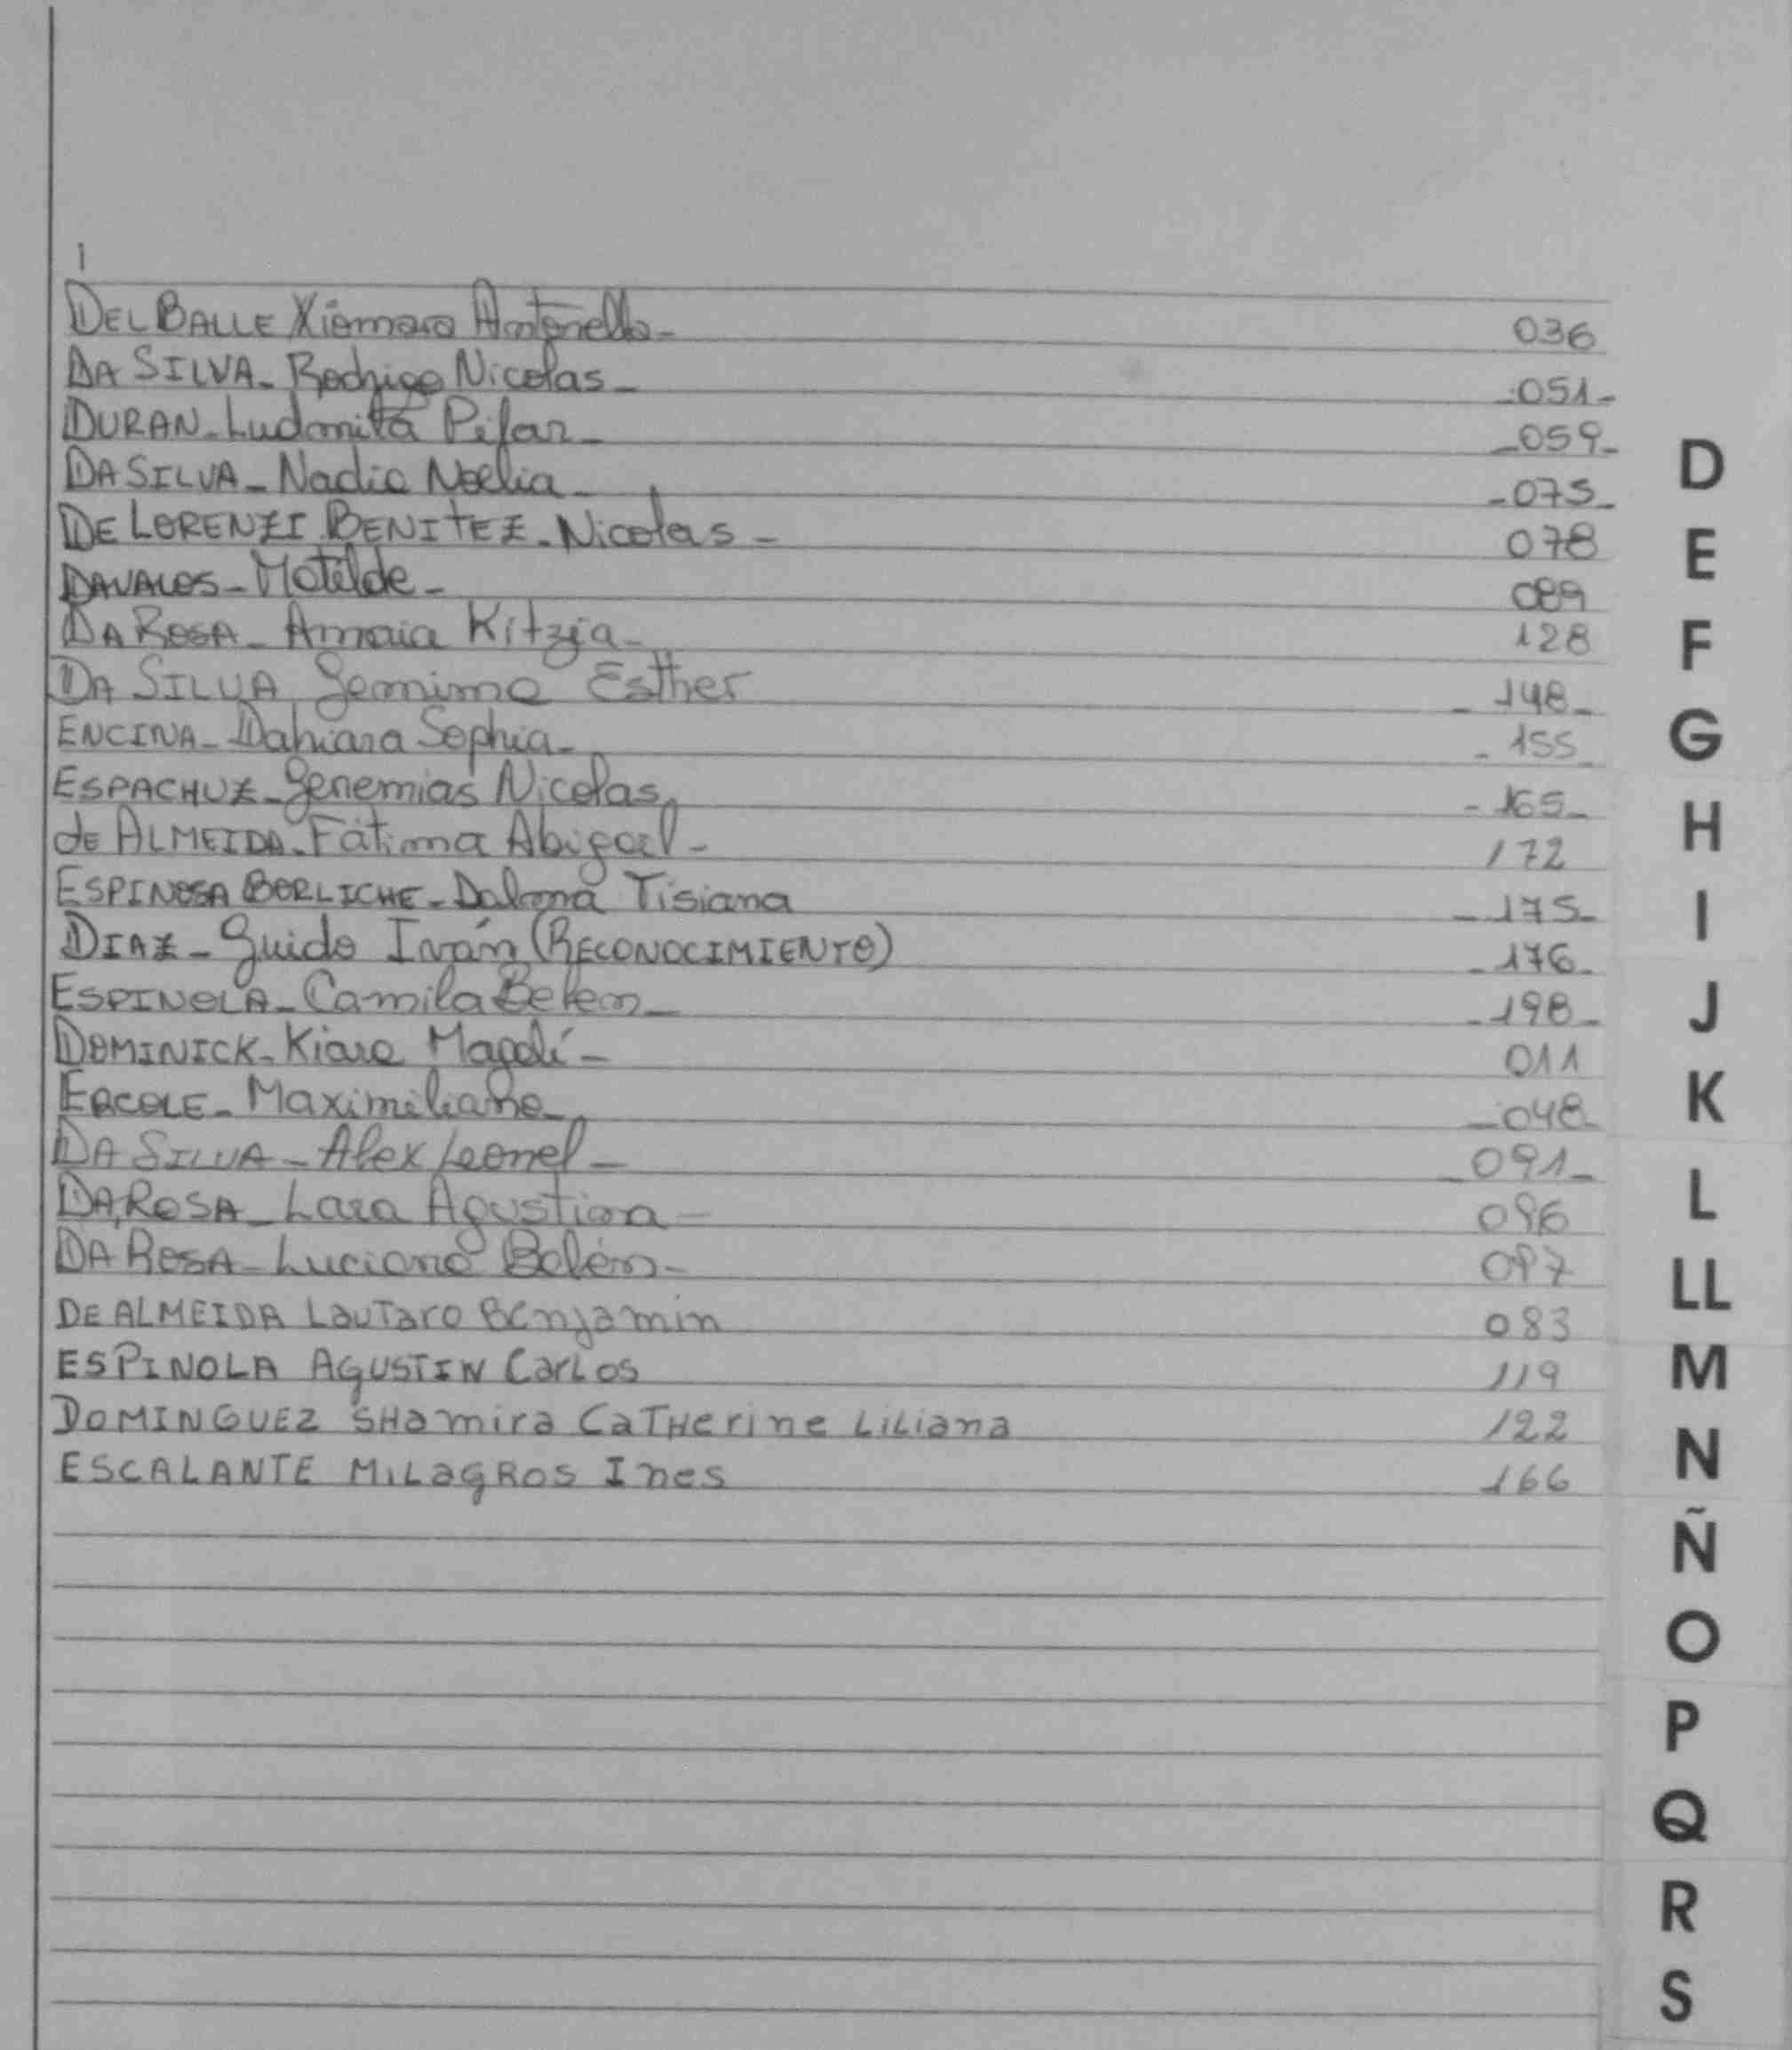 DEL BALLE Xiomara Antonella- 036
DA SILVA- Rodrigo Nicolas- -051-
DURAN- Ludmila Pilar- -059-
DA SILVA- Nadia Noelia- -075-
DE LORENZI BENITEZ- Nicolas- 078
DAVALOS- Matilde- 089
DA ROSA- Amaia Kitzia- 128
DA SILVA Jemima Esther - 148-
ENCINA- Dahiana Sophia- - 155
ESPACHUZ- Jeremias Nicolas - 165-
de ALMEIDA- Fátima Abigail- 172
ESPINOSA BORLICHE- Tisiana - 175-
DIAZ- Guido Iván (RECONOCIMIENTO) - 176-
ESPINOLA- Camila Belen- - 198-
DOMINICK- Kiara Magalí- 011
ERCOLE- Maximiliano- -048-
DA SILVA- Alex Leonel- -091-
DA ROSA- Lara Agustina- 096
DA ROSA- Luciana Belén- 097
DE ALMEIDA Lautaro Benjamin 083
ESPINOLA AGUSTIN CarLos 119
DOMINGUEZ SHamira CaTHerine LiLiana 122
ESCALANTE MILagROS Ines 166
D
E
F
G
H
I
J
K
L
LL
M
N
Ñ
O
P
Q
R
S